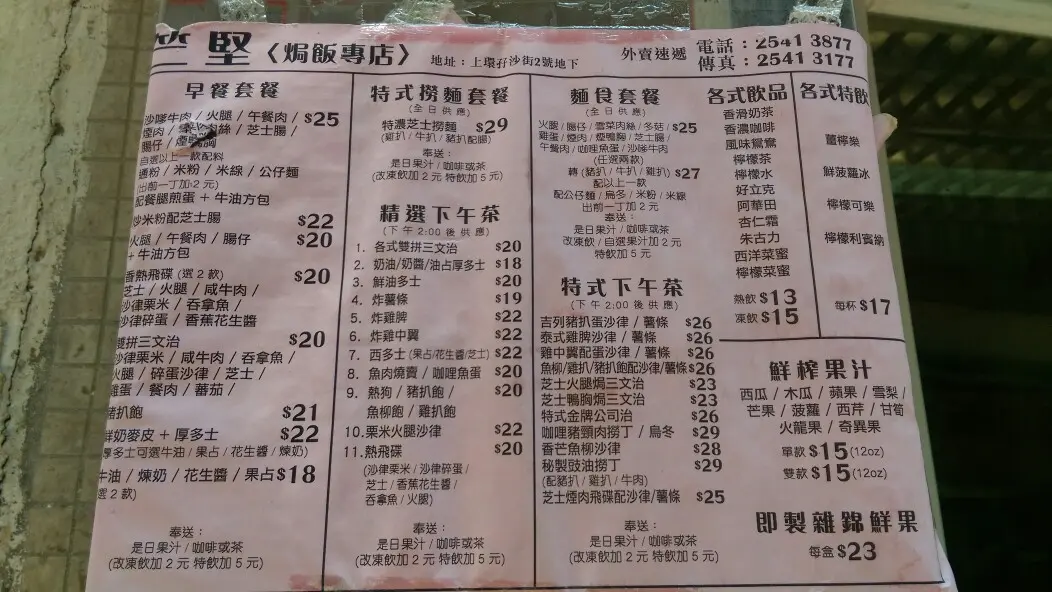 堅〈焗飯專店〉
地址：上環孖沙街2號地下
外賣速遞
電話：2541 3877
傳真：2541 3177
早餐套餐
沙嗲牛肉 / 火腿 / 午餐肉 / $25
腸仔 / 煙鴨胸
自選以上一款配料
通粉 / 米粉 / 米線 / 公仔麵
(出前一丁加2元)
配餐腿煎蛋 + 牛油方包
炒米粉配芝士腸 $22
火腿 / 午餐肉 / 腸仔 $20
+ 牛油方包
香熱飛碟 (選2款) $20
芝士 / 火腿 / 咸牛肉 /
沙律栗米 / 吞拿魚 /
沙律碎蛋 / 香蕉花生醬
雙拼三文治 $20
沙律栗米 / 咸牛肉 / 吞拿魚 /
火腿 / 碎蛋沙律 / 芝士 /
雞蛋 / 餐肉 / 蕃茄 /
豬扒飽 $21
鮮奶麥皮 + 厚多士 $22
(厚多士可選牛油 / 果占 / 花生醬 / 煉奶)
牛油 / 煉奶 / 花生醬 / 果占 $18
選2款)
奉送：
是日果汁 / 咖啡或茶
(改凍飲加2元 特飲加5元)
特式撈麵套餐
(全日供應)
特濃芝士撈麵 $29
(雞扒 / 牛扒 / 豬扒配腸)
奉送：
是日果汁 / 咖啡或茶
(改凍飲加2元 特飲加5元)
精選下午茶
(下午2:00後供應)
1. 各式雙拼三文治 $20
2. 奶油/奶醬/油占厚多士 $18
3. 鮮油多士 $20
4. 炸薯條 $19
5. 炸雞髀 $22
6. 炸雞中翼 $22
7. 西多士 (果占/花生醬/芝士) $22
8. 魚肉燒賣 / 咖哩魚蛋 $20
9. 熱狗 / 豬扒飽 / $20
魚柳飽 / 雞扒飽
10. 栗米火腿沙律 $22
11. 熱飛碟 $20
(沙律栗米 / 沙律碎蛋 /
芝士 / 香蕉花生醬 /
吞拿魚 / 火腿)
奉送：
是日果汁 / 咖啡或茶
(改凍飲加2元 特飲加5元)
麵食套餐
(全日供應)
火腿 / 腸仔 / 雪菜肉絲 / 多菇 / $25
雞蛋 / 煙肉 / 煙鴨胸 / 芝士腸 /
午餐肉 / 咖哩魚蛋 / 沙嗲牛肉
(任選兩款)
轉 (豬扒 / 牛扒 / 雞扒) $27
配以上一款
配公仔麵 / 烏冬 / 米粉 / 米線
出前一丁加2元
奉送：
是日果汁 / 咖啡或茶
改凍飲 / 自選果汁加2元
特飲加5元
特式下午茶
(下午2:00後供應)
吉列豬扒蛋沙律 / 薯條 $26
泰式雞髀沙律 / 薯條 $26
雞中翼配蛋沙律 / 薯條 $26
魚柳/雞扒/豬扒飽配沙律/薯條 $26
芝士火腿焗三文治 $23
芝士鴨胸焗三文治 $23
特式金牌公司治 $26
咖哩豬頸肉撈丁 / 烏冬 $29
香芒魚柳沙律 $28
秘製豉油撈丁 $29
(配豬扒 / 雞扒 / 牛肉)
芝士煙肉飛碟配沙律/薯條 $25
奉送：
是日果汁 / 咖啡或茶
(改凍飲加2元 特飲加5元)
各式飲品
香滑奶茶
香濃咖啡
風味鴛鴦
檸檬茶
檸檬水
好立克
阿華田
杏仁霜
朱古力
西洋菜蜜
檸檬菜蜜
熱飲 $13
凍飲 $15
各式特飲
薑檸樂
鮮菠蘿冰
檸檬可樂
檸檬利賓納
每杯 $17
鮮榨果汁
西瓜 / 木瓜 / 蘋果 / 雪梨 /
芒果 / 菠蘿 / 西芹 / 甘筍
火龍果 / 奇異果
單款 $15 (12oz)
雙款 $15 (12oz)
即製雜錦鮮果
每盒 $23